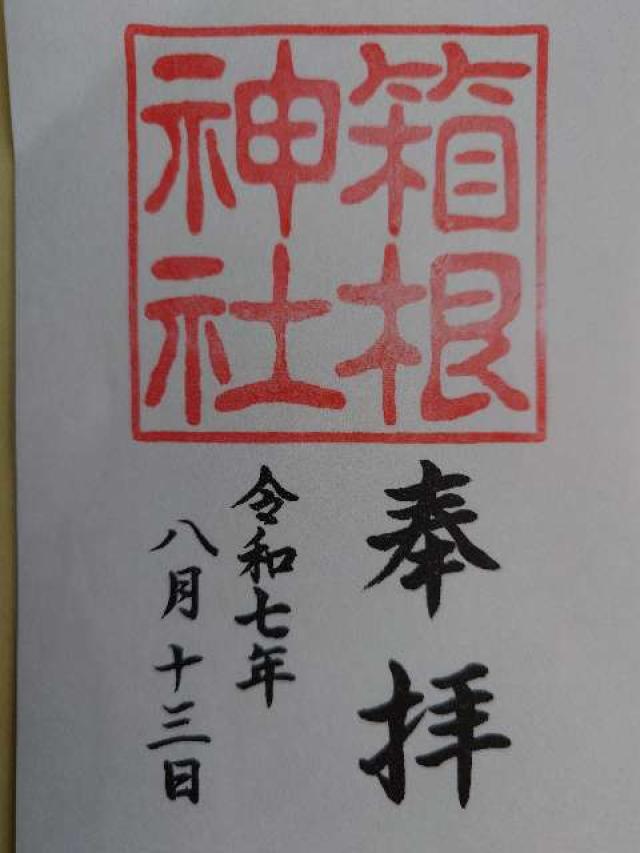 箱根
神社
奉拝
令和七年
八月十三日